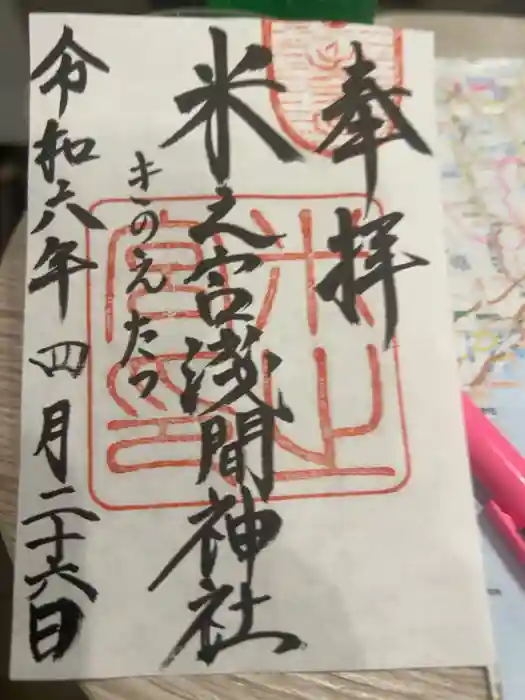 奉拝
米之宮浅間神社
きのえたつ
令和六年四月二十六日